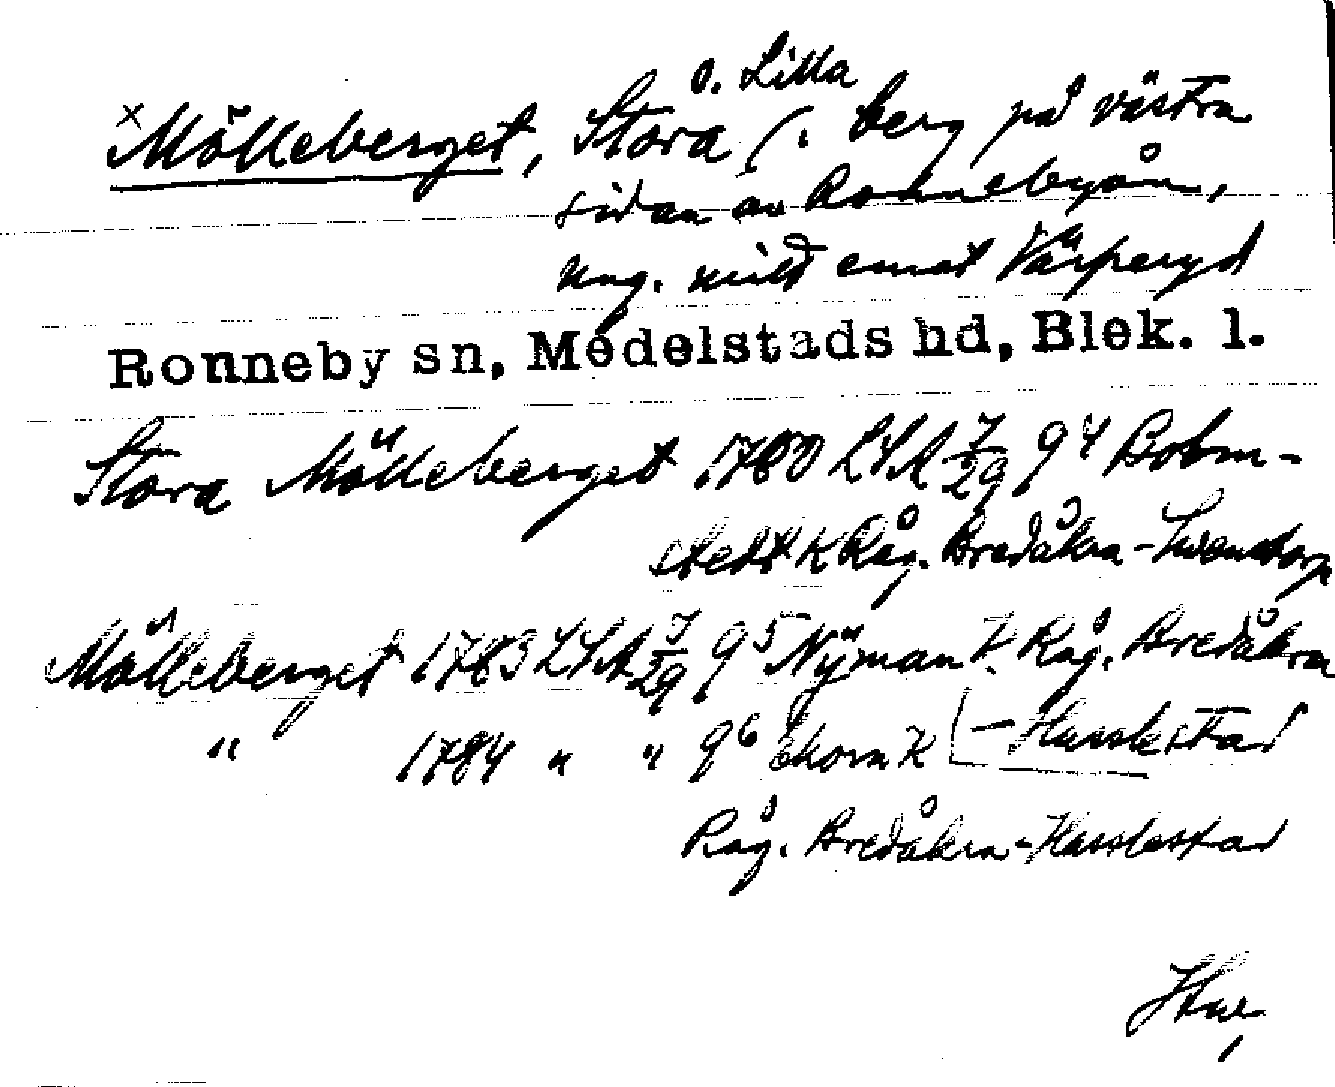 o. Lilla
x Mölleberget, Stora (: berg på västra
sidan av Ronnebyån,
ung. mitt emot Värperyd
Ronneby sn, Medelstads hd, Blek. l.
Stora Mölleberget 1780 LSA 7/29 q4 Bohm-
stedt K Råg. Bredåkra-Svenstorp
Mölleberget 1783 LSA 7/29 q5 Nyman K. Råg. Bredåkra
" 1784 " " q6 Ekorn K - Hasslestad
Råg. Bredåkra-Hasslestad